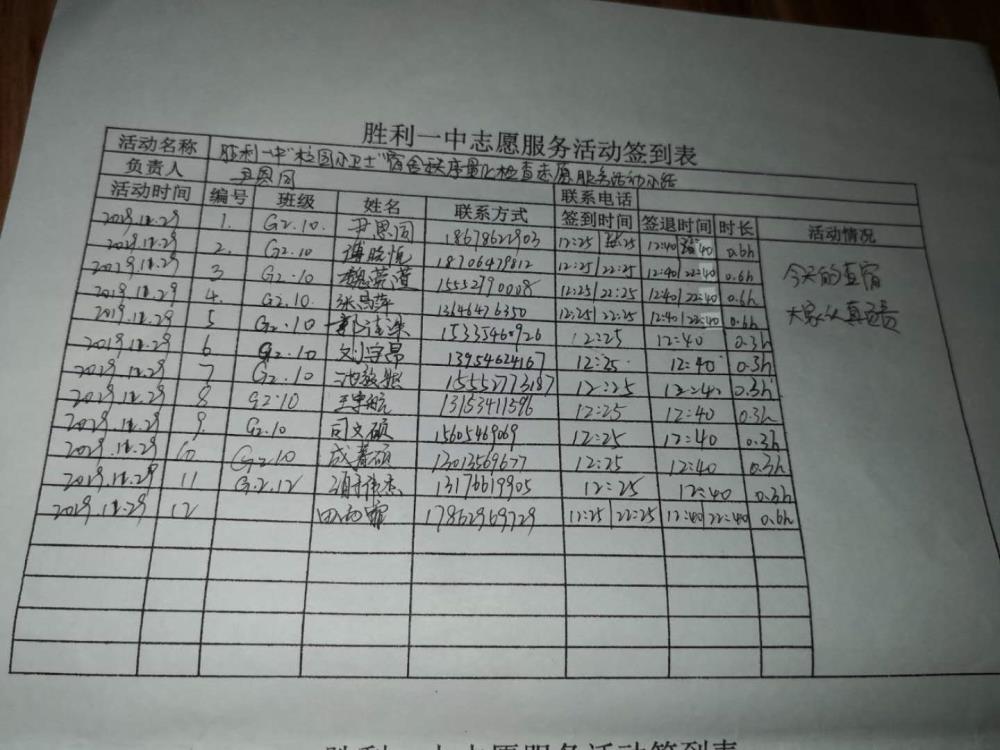 胜利一中志愿服务活动签到表
活动名称 胜利一中"校园小卫士"宿舍秩序量化检查志愿服务活动小结
负责人 尹思同 联系电话
活动时间 编号 班级 姓名 联系方式 签到时间 签退时间 时长 活动情况
2019.12.29 1. G2.10. 尹思同 18678622903 12:25 22:25 12:40 22:40 0.6h
2019.12.29 2. G2.10 18706479812 12:25 22:25 12:40 22:40 0.6h
2019.12.29 3 G2.10 15552790008 12:25 22:25 12:40 22:40 0.6h
2019.12.29 4. G2.10. 13646476350 12:25 22:25 12:40 22:40 0.6h
2019.12.29 5 G2.10 15335460926 12:25 12:40 0.3h
2019.12.29 6 G2.10 刘宇昂 13954624167 12:25 12:40 0.3h
2019.12.29 7 G2.10 15552773187 12:25 12:40 0.3h
2019.12.29 8 G2.10 王宇航 13153411596 12:25 12:40 0.3h
2019.12.29 9. G2.10 司文硕 15605469069 12:25 12:40 0.3h
2019.12.29 10 G2.10 13013569677 12:25 12:40 0.3h
2019.12.29 11 G2.12 13176619905 12:25 12:40 0.3h
2019.12.29 12 17862969729 12:25 22:25 12:40 22:40 0.6h
今天的查宿
大家认真负责
胜利一中志愿服务活动签到表